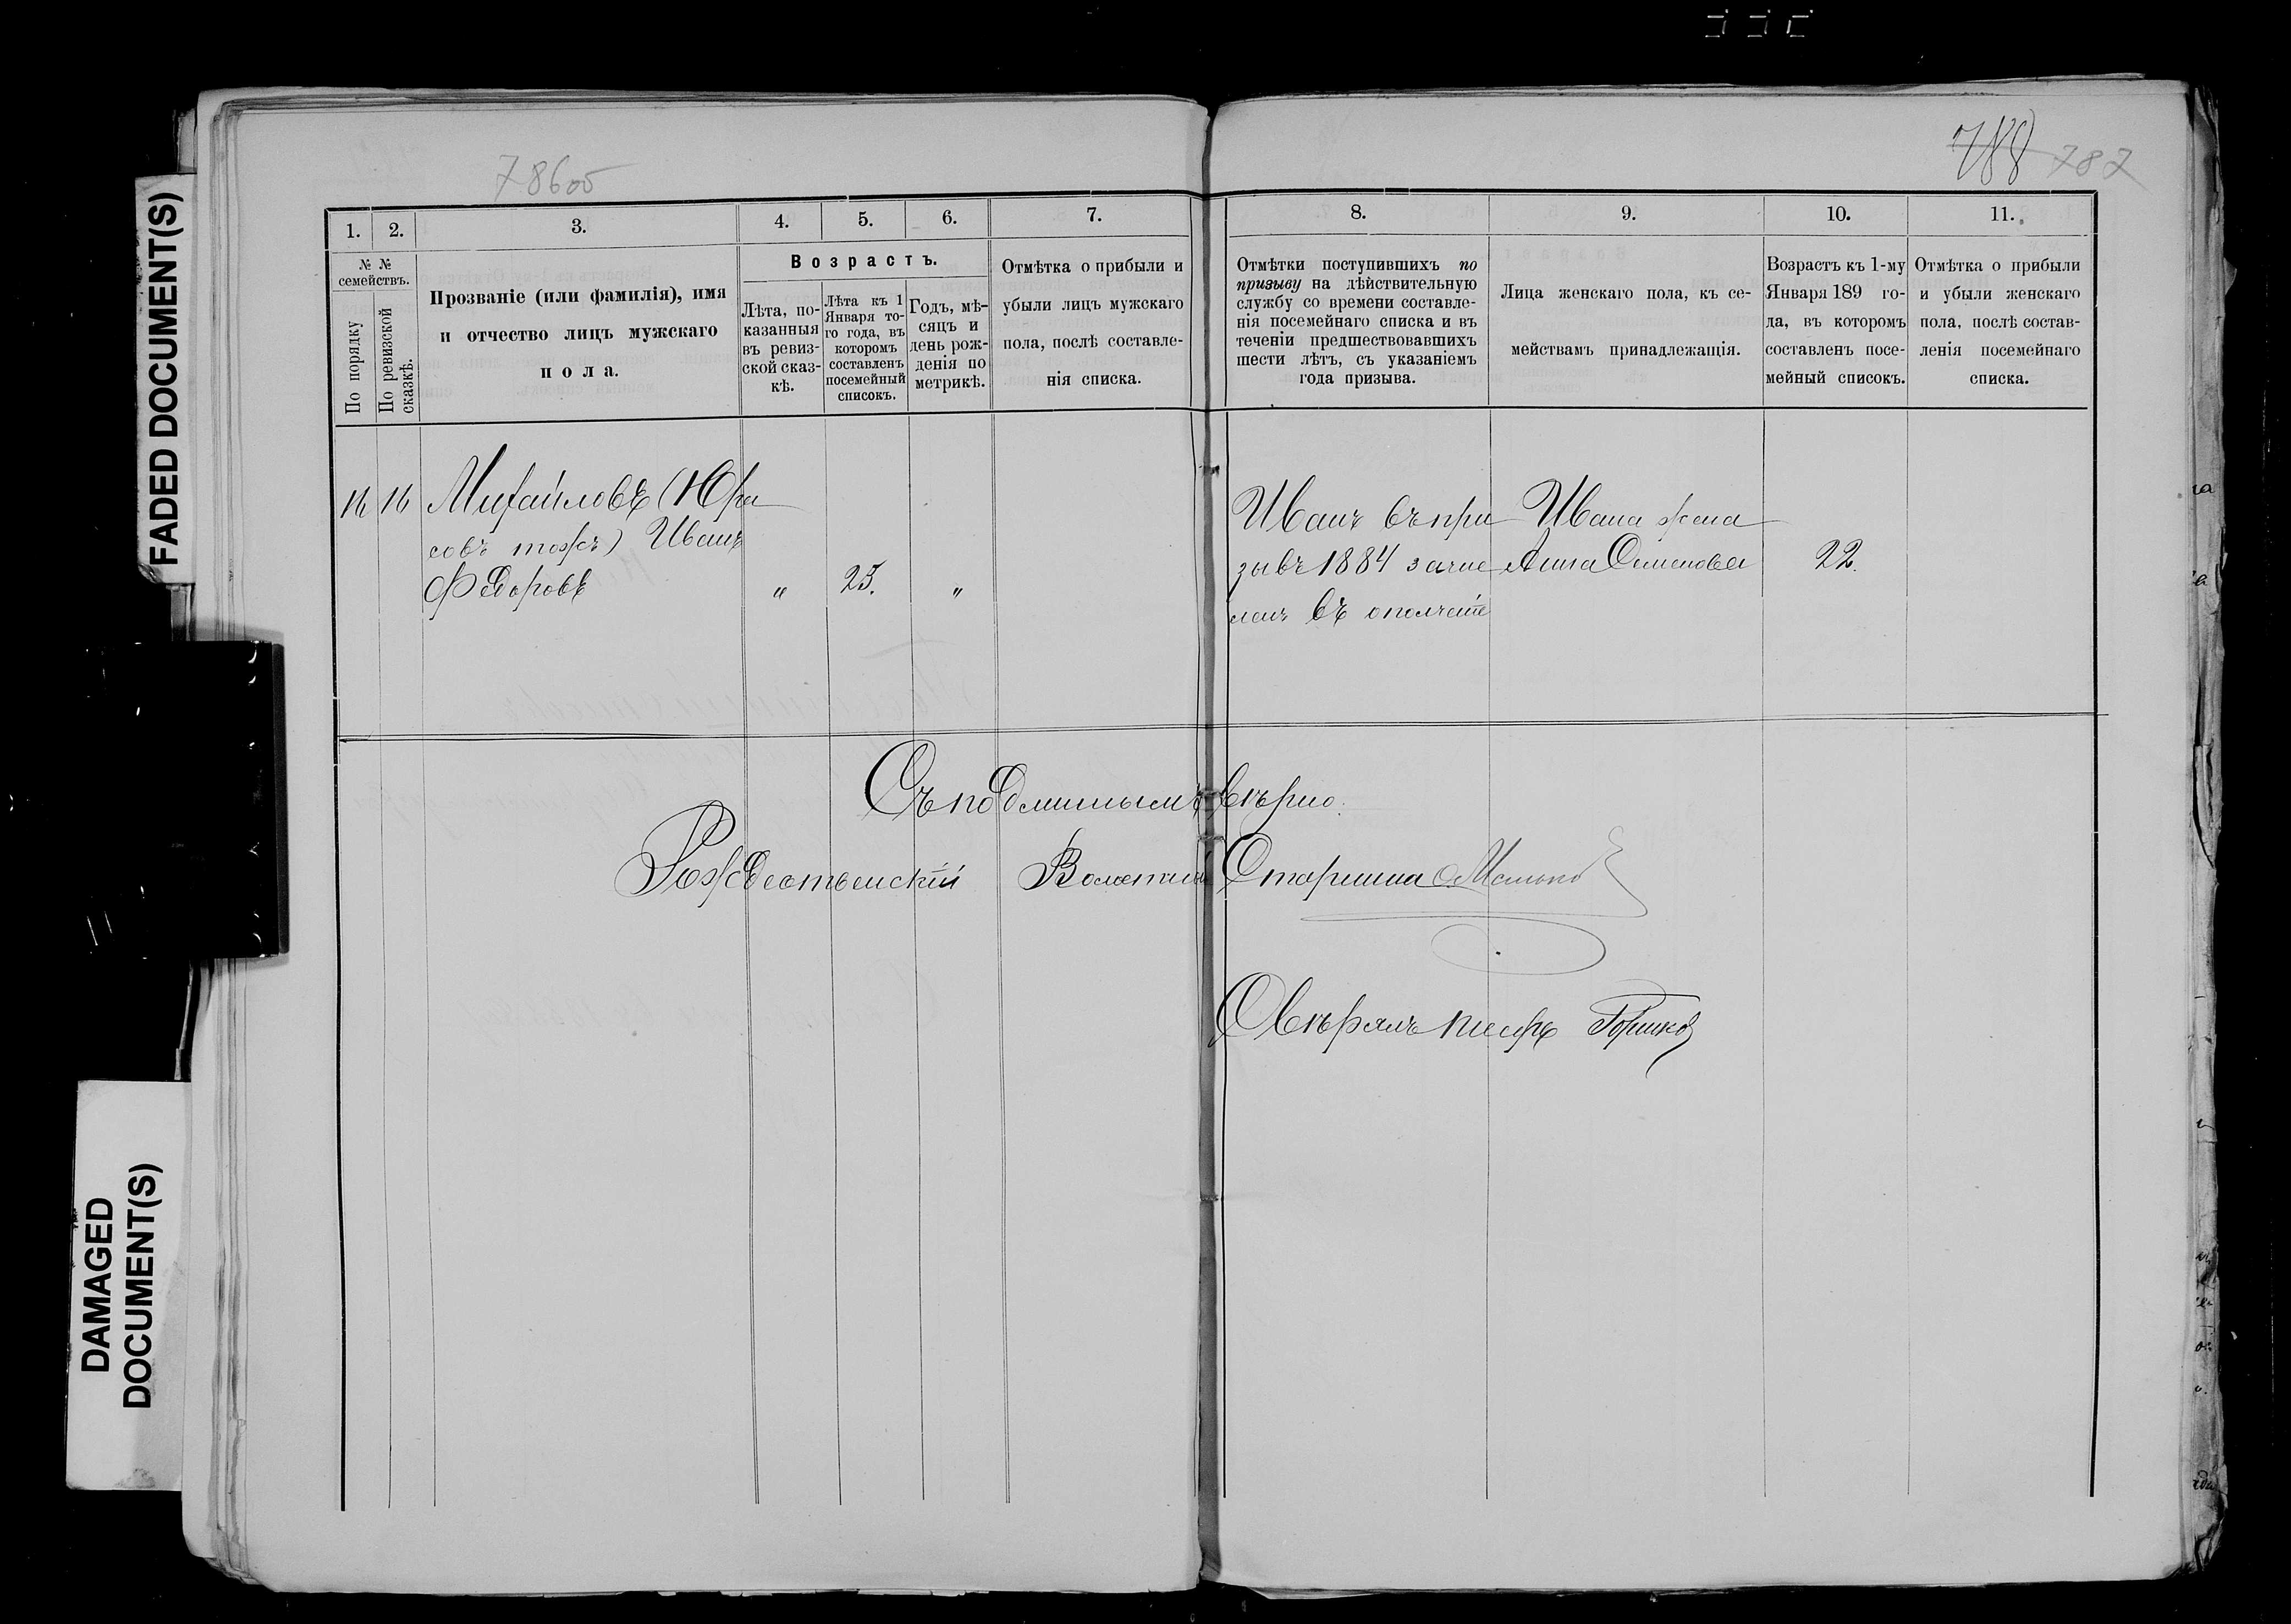 FADED DOCUMENT(S)
DAMAGED
DOCUMENT(S)
786об
788 787
1. 2. 3. 4. 5. 6. 7.
№ №
семействъ.
По порядку
По ревизской
сказкѣ.
Прозваніе (или фамилія), имя
и отчество лицъ мужскаго
пола.
Возрастъ.
Лѣта, по-
казанныя
въ ревиз-
ской сказ-
кѣ.
Лѣта къ 1
Января то-
го года, въ
которомъ
составленъ
посемейный
списокъ.
Годъ, мѣ-
сяцъ и
день рож-
денія по
метрикѣ.
Отмѣтка о прибыли и
убыли лицъ мужскаго
пола, послѣ составле-
нія списка.
8. 9. 10. 11.
Отмѣтки поступившихъ по
призыву на дѣйствительную
службу со времени составле-
нія посемейнаго списка и въ
теченіи предшествовавшихъ
шести лѣтъ, съ указаніемъ
года призыва.
Лица женскаго пола, къ се-
мействамъ принадлежащія.
Возрастъ къ 1-му
Января 189 го-
да, въ которомъ
составленъ посе-
мейный списокъ.
Отмѣтка о прибыли
и убыли женскаго
пола, послѣ состав-
ленія посемейнаго
списка.
16 16 Михайловъ (Юра
совъ тожъ) Иванъ
Федоровъ " 25. "
Иванъ въ при
зывъ 1884 зачис
ленъ въ ополченіе
Ивана жена
Анна Семенова 22.
Съ подлиннымъ вѣрно.
Рождественскій Волостной Старшина
Свѣрялъ писарь Горшков